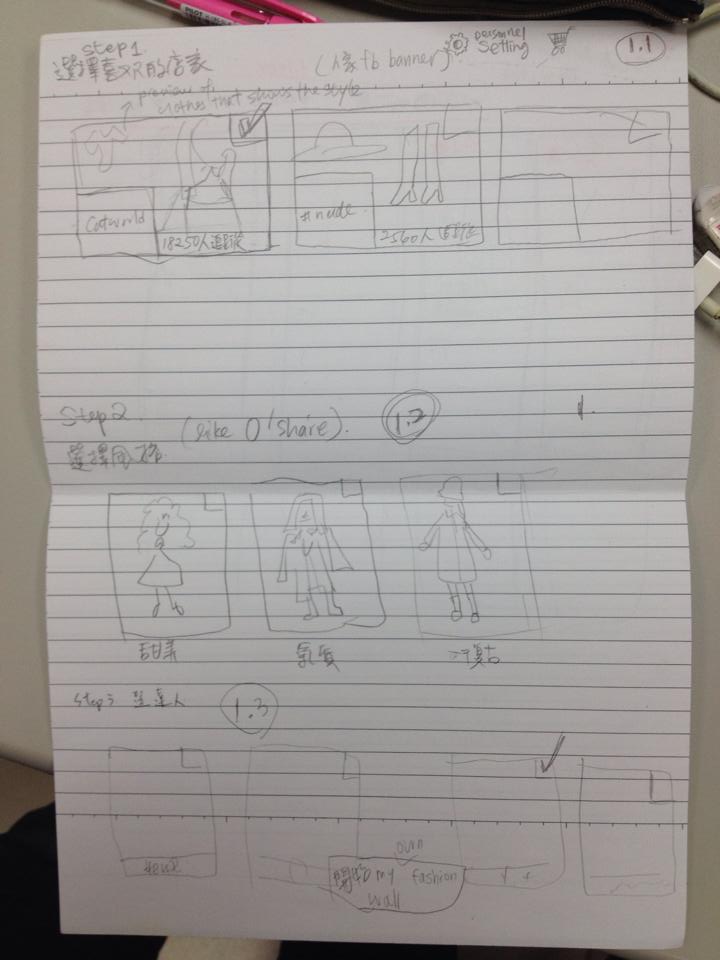 step1.
選擇喜歡的店家
(人家fb banner)
personnel
setting
1.1
preview of
clothes that shows the style
Catworld
18250人追蹤
#nude
2560人追蹤
Step2
(like O'share).
1.2
1.
選擇風格
甜美
氣質
復古
Step3 達人
1.3
own
開始 my fashion
wall